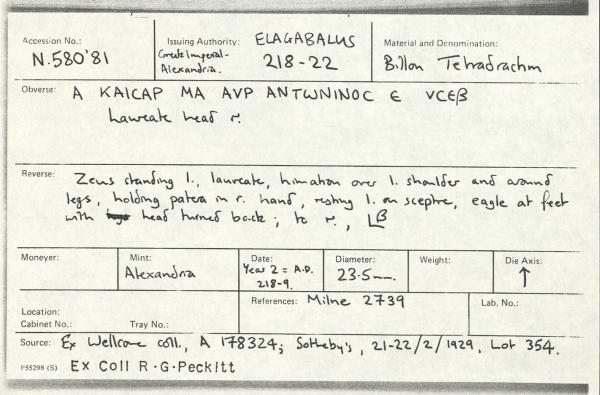 Accession No.: N.580'81
Issuing Authority: ELAGABALUS
Greek Imperial - 218-22
Alexandria.
Material and Denomination:
Billon Tetradrachm
Obverse: A KAICAP MA AVP ANTWNINOC Є VCЄβ
Laureate head r.
Reverse: Zeus standing l., laureate, himation over l. shoulder and around
legs, holding patera in r. hand, resting l. on sceptre, eagle at feet
with head turned back; to r., Lβ
Moneyer:
Mint: Alexandria
Date: Year 2 = A.D. 218-9.
Diameter: 23.5mm.
Weight:
Die Axis: ↑
Location:
Cabinet No.: Tray No.:
References: Milne 2739
Lab. No.:
Source: Ex Wellcome coll., A 178324; Sotheby's, 21-22/2/1929, Lot 354.
P55298 (S) Ex Coll R.G.Peckitt